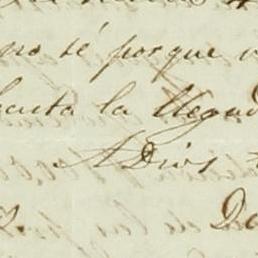 no sé porque
hasta la llegad
Adios
2. De